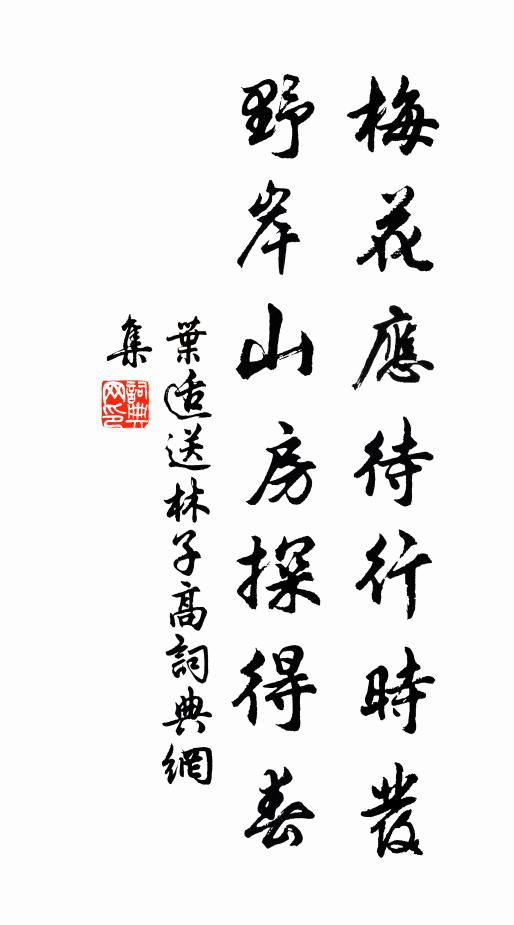 梅花應待行時發
野岸山房探得春
葉适送林子高詞典網
集
詞典
网印